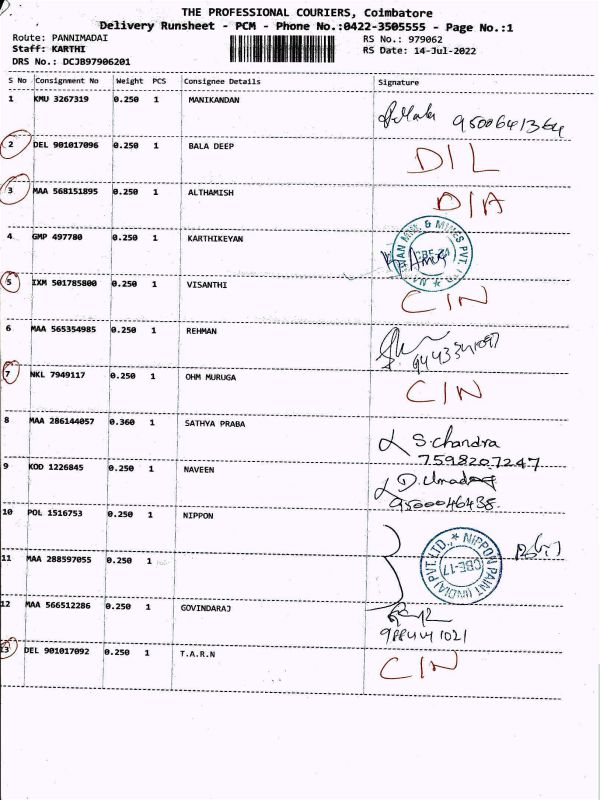 THE PROFESSIONAL COURIERS, Coimbatore
Delivery Runsheet - PCM - Phone No.:0422-3505555 - Page No.:1
Route: PANNIMADAI RS No.: 979062
Staff: KARTHI RS Date: 14-Jul-2022
DRS No.: DCJB97906201
S No Consignment No Weight PCS Consignee Details Signature
1 KMU 3267319 0.250 1 MANIKANDAN
9500641364
2 DEL 901017096 0.250 1 BALA DEEP D/L
3 MAA 568151895 0.250 1 ALTHAMISH D/A
4 GMP 497780 0.250 1 KARTHIKEYAN
5 IXM 501785800 0.250 1 VISANTHI C/N
6 MAA 565354985 0.250 1 REHMAN
7 NKL 7949117 0.250 1 OHM MURUGA C/N
8 MAA 286144057 0.360 1 SATHYA PRABA S.chandra
7598207247
9 KOD 1226845 0.250 1 NAVEEN
9500046435
10 POL 1516753 0.250 1 NIPPON
NIPPON PAINT (INDIA) PVT. LTD. CBE-17
11 MAA 288597055 0.250 1
12 MAA 566512286 0.250 1 GOVINDARAJ
13 DEL 901017092 0.250 1 T.A.R.N C/N